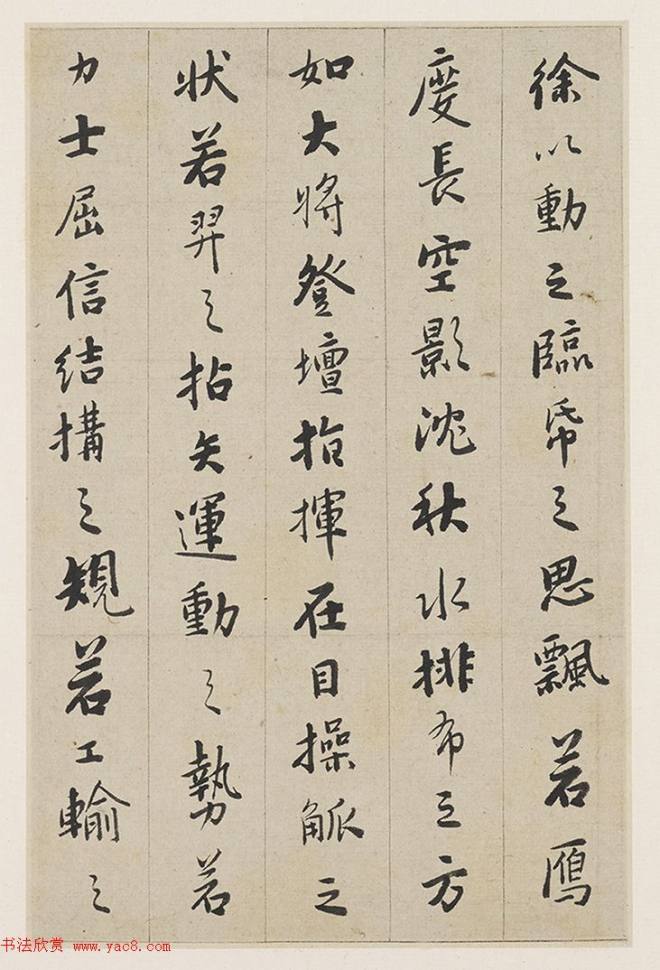 徐以動之臨帋之思飄若鴈
度長空影沈秋水排布之方
如大將登壇指揮在目操觚之
狀若羿之拈矢運動之勢若
力士屈信結構之規若工輸之
书法欣赏 www.yac8.com